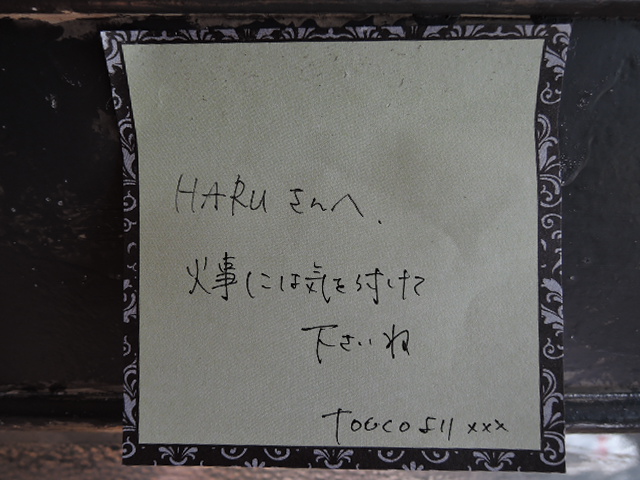 HARUさんへ.
火事には気を付けて
下さいね
TOGCOより xxx